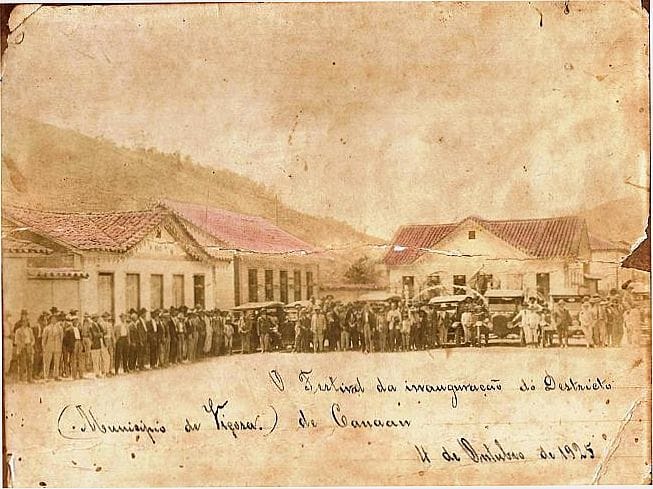 O Festival da inauguração do Destricto
(Municipio de Viçosa.) de Canaan
4 de Outubro de 1925